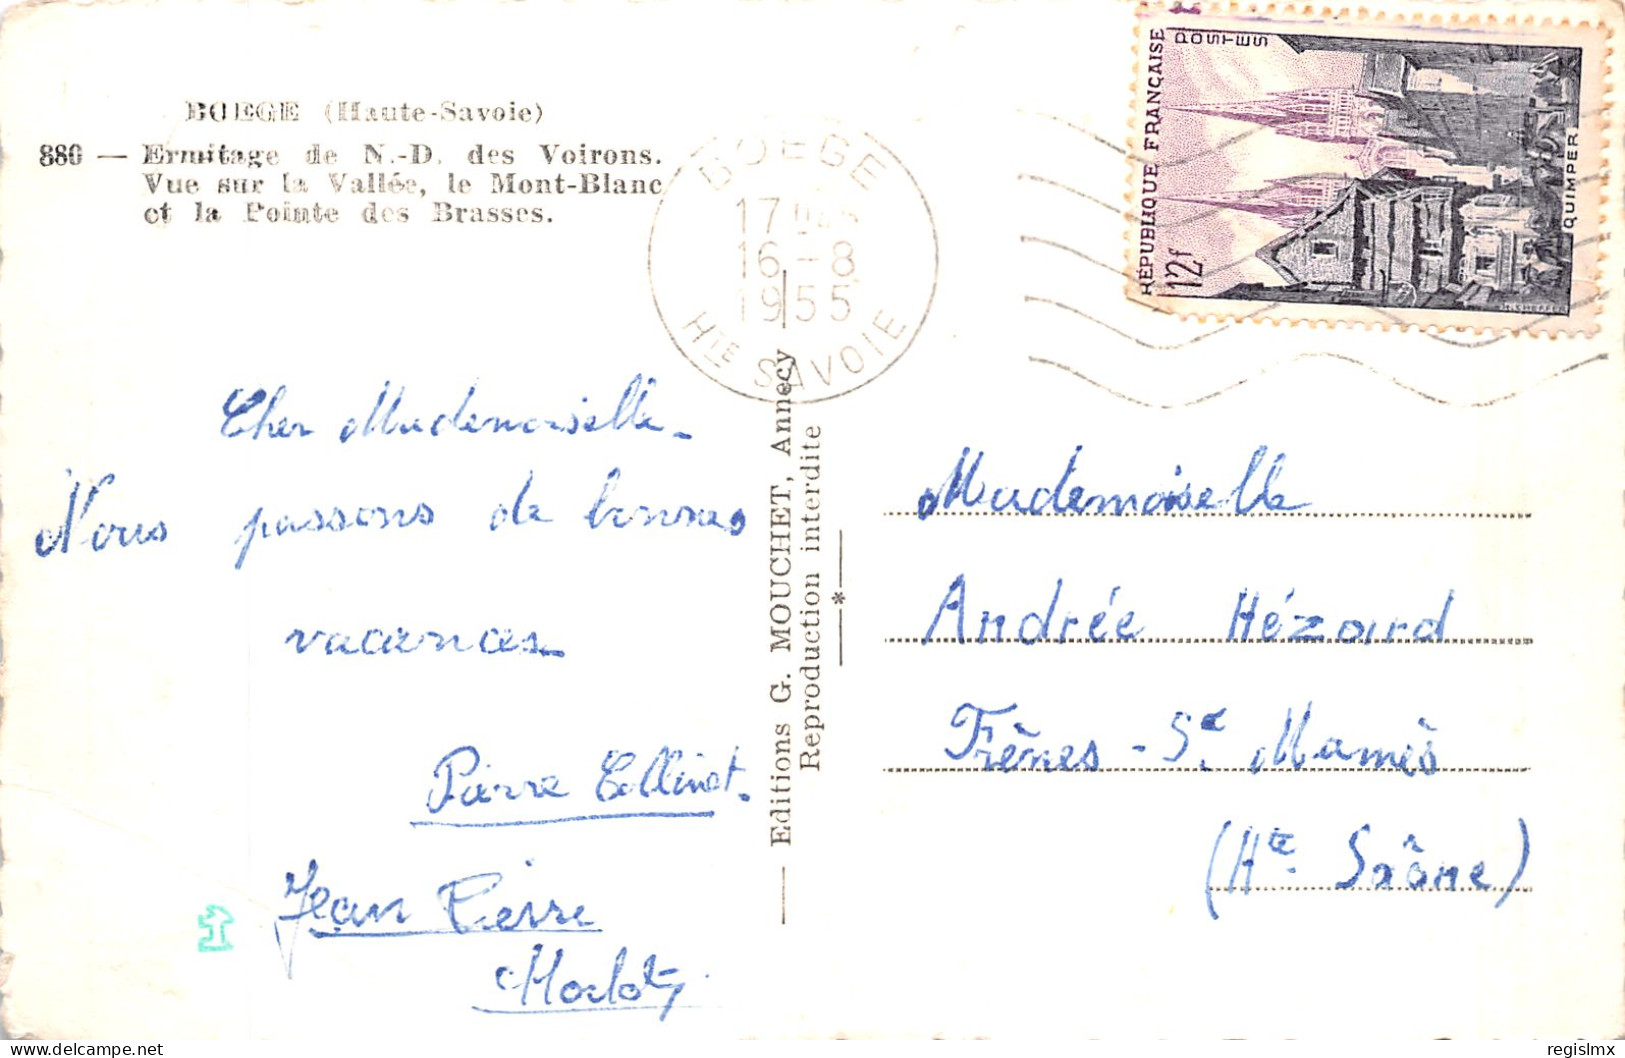 BOEGE (Haute-Savoie)
880 — Ermitage de N.-D. des Voirons.
Vue sur la Vallée, le Mont-Blanc
et la Pointe des Brasses.
BOEGE
17
16-8
1955
HTE SAVOIE
RÉPUBLIQUE FRANÇAISE
POSTES
12f
QUIMPER
Cher Mademoiselle.
Nous passons de bonnes
vacances.
Pierre Collinet.
Jean Pierre
Editions G. MOUCHET, Annecy
Reproduction interdite
*
Mademoiselle
Andrée Hézard
Frênes-Se. Mamès
(Hte. Saône)
delcampe.net
regislmx